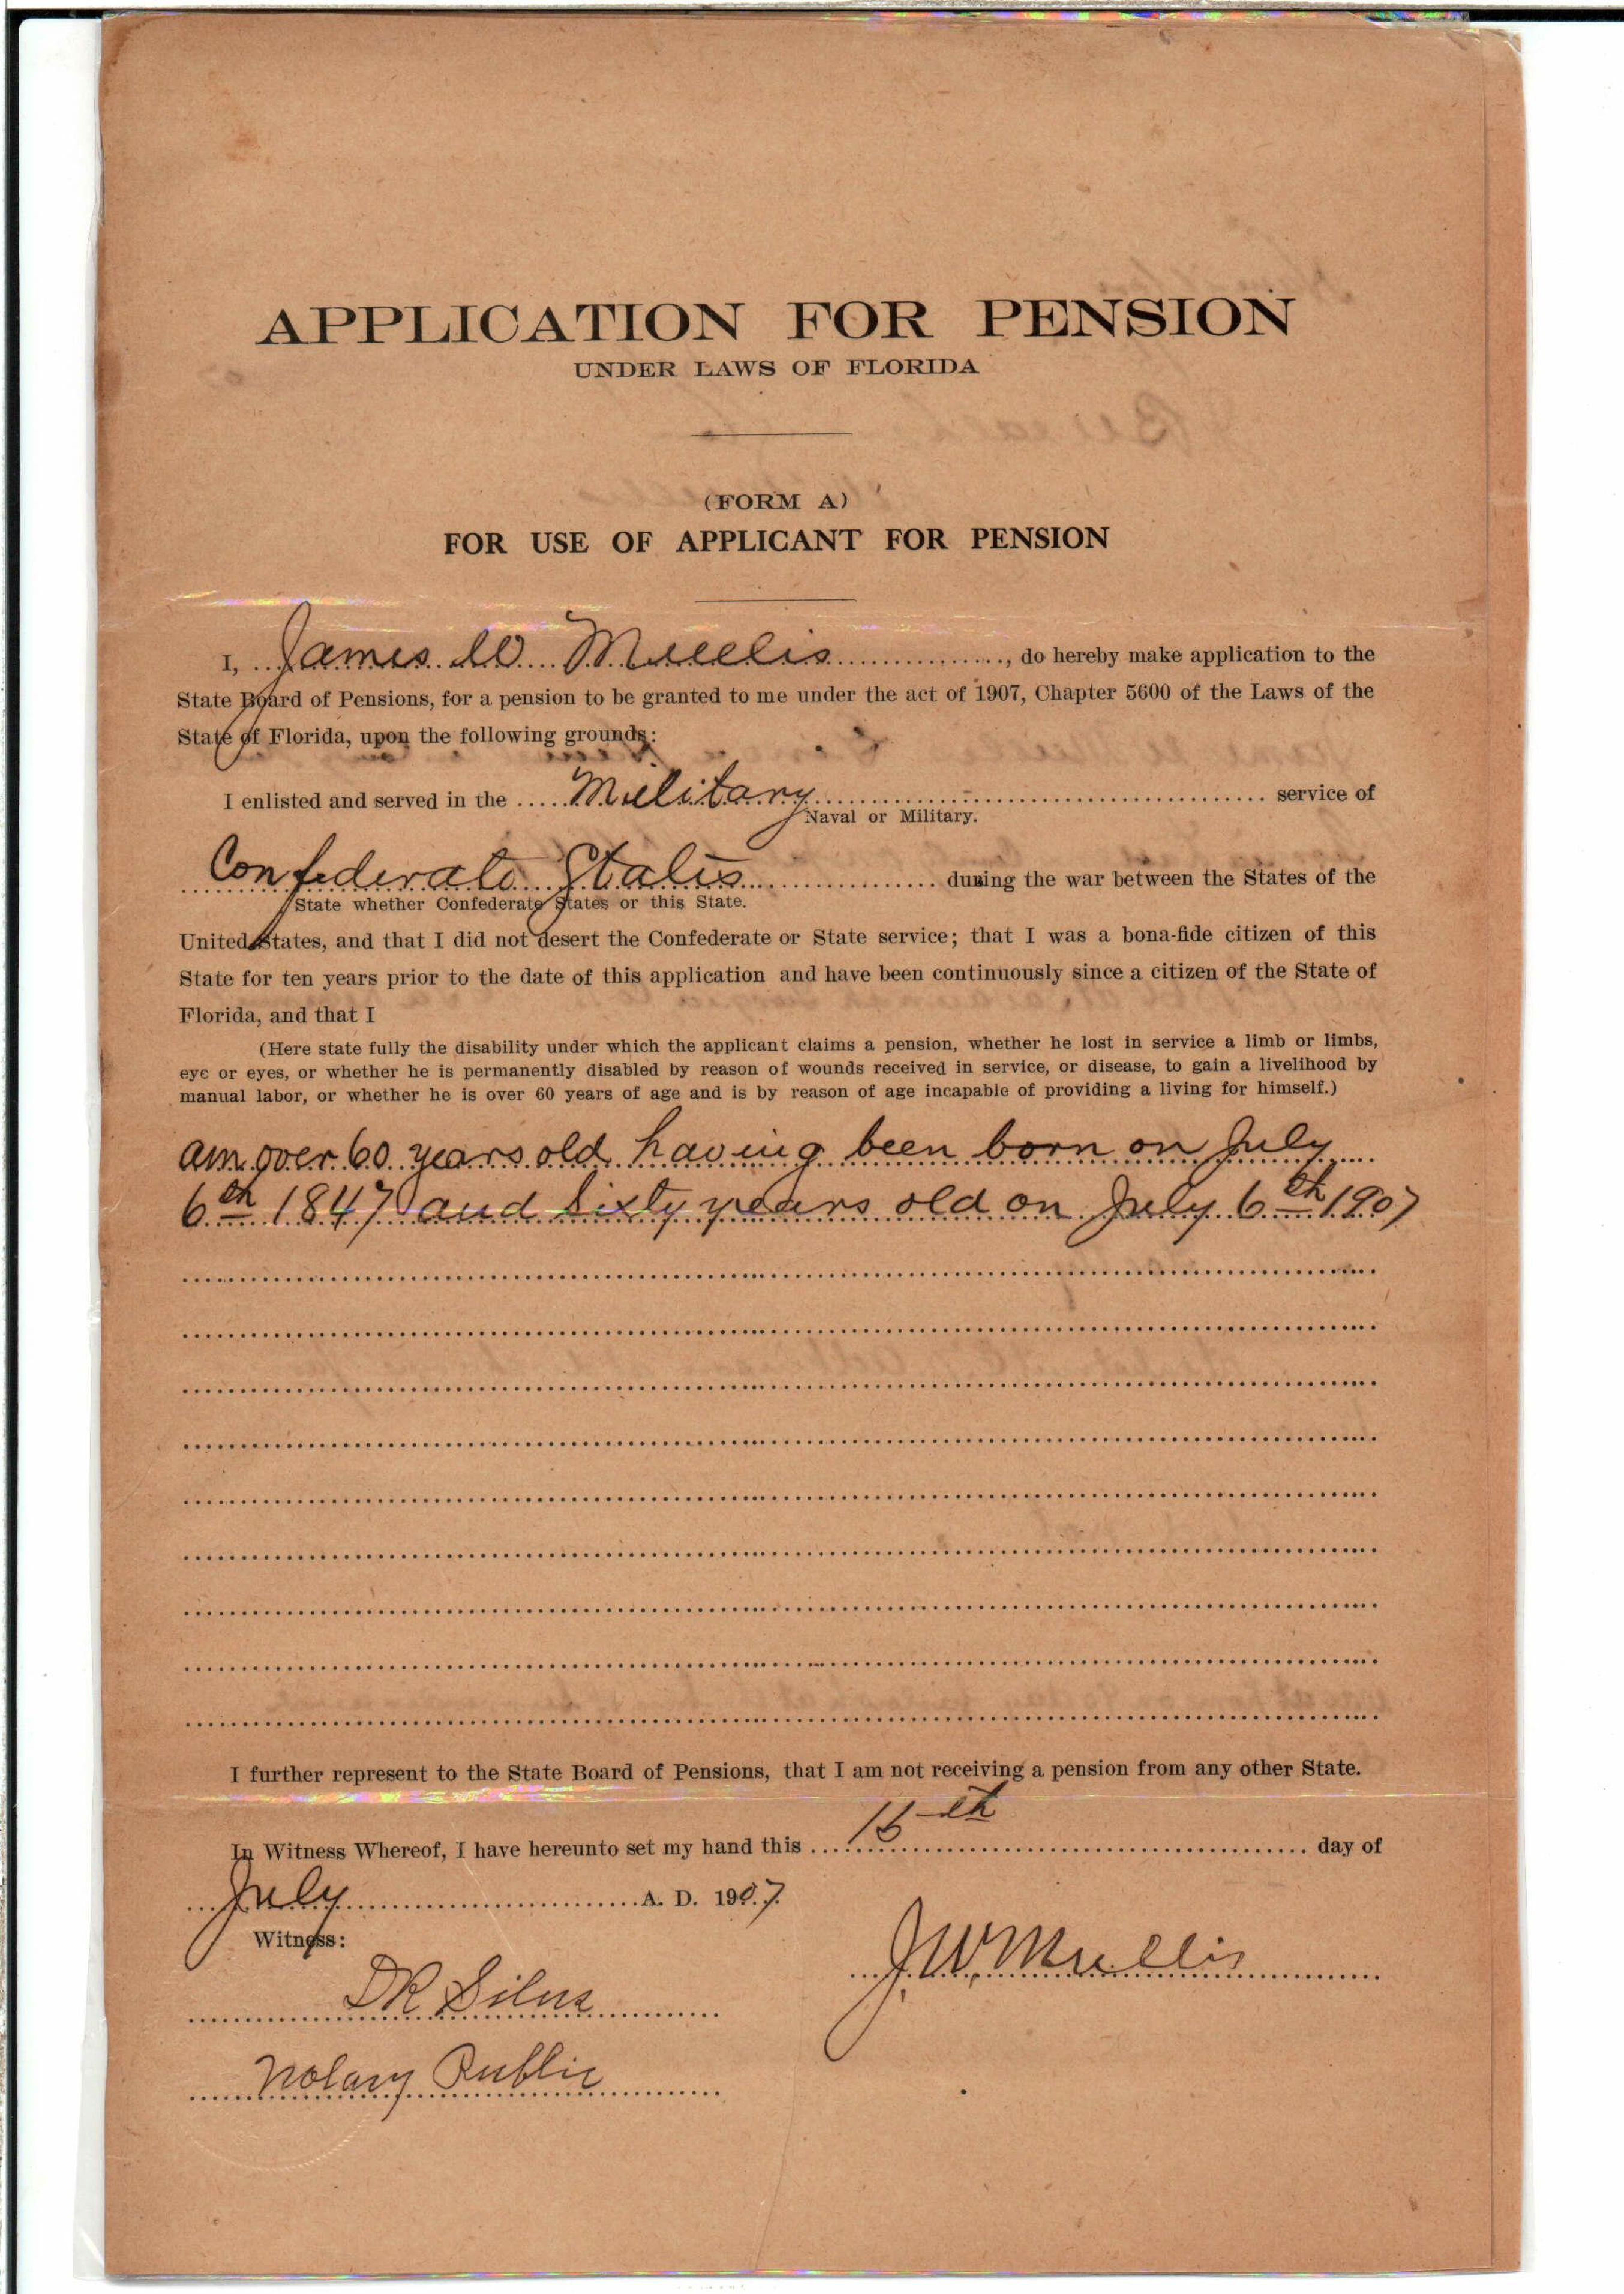 APPLICATION FOR PENSION
UNDER LAWS OF FLORIDA
(FORM A)
FOR USE OF APPLICANT FOR PENSION
I, James W Mullis, do hereby make application to the
State Board of Pensions, for a pension to be granted to me under the act of 1907, Chapter 5600 of the Laws of the
State of Florida, upon the following grounds:
I enlisted and served in the Military service of
Naval or Military.
Confederate States during the war between the States of the
State whether Confederate States or this State.
United States, and that I did not desert the Confederate or State service; that I was a bona-fide citizen of this
State for ten years prior to the date of this application and have been continuously since a citizen of the State of
Florida, and that I
(Here state fully the disability under which the applicant claims a pension, whether he lost in service a limb or limbs,
eye or eyes, or whether he is permanently disabled by reason of wounds received in service, or disease, to gain a livelihood by
manual labor, or whether he is over 60 years of age and is by reason of age incapable of providing a living for himself.)
am over 60 years old having been born on July
6th 1847 and Sixty years old on July 6th 1907
I further represent to the State Board of Pensions, that I am not receiving a pension from any other State.
In Witness Whereof, I have hereunto set my hand this day of
July A. D. 1907.
Witness:
J W Mullis
D R
Notary Public